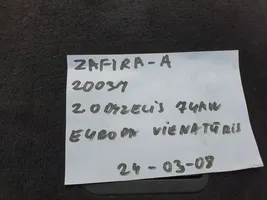 ZAFIRA-A
2003M
2.0 DYZELIS 74KW
EUROPA VIENATŪRIS
24-03-08